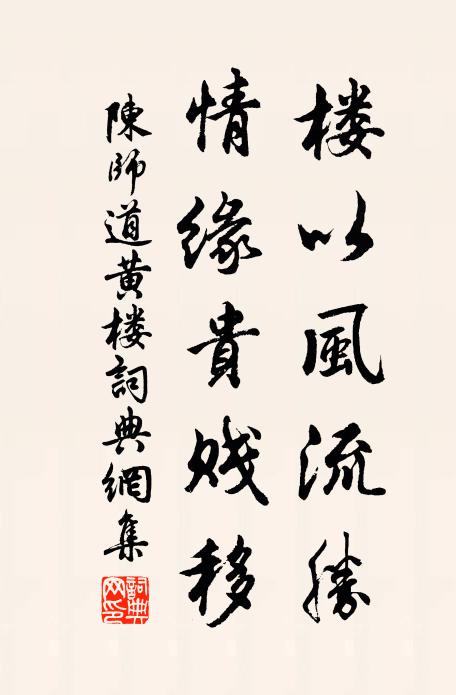 楼以風流勝
情緣貴賤移
陳師道黄楼詞典網集
詞典网印